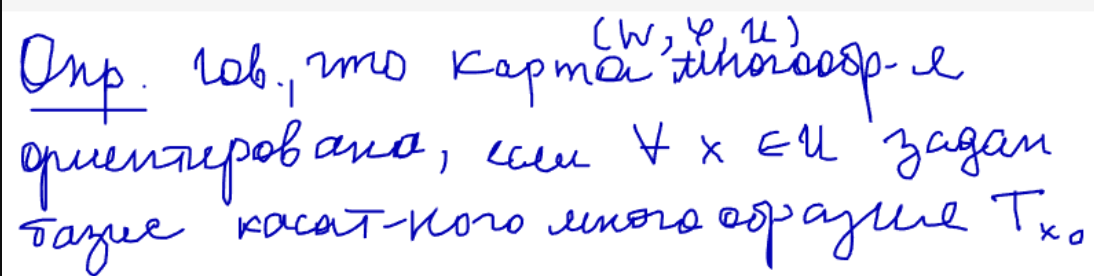 Опр. Гов., что карта (W, φ, U) многообр-я
ориентирована, если ∀ x ∈ U задан
базис касат-ного многообразие Tₓ.